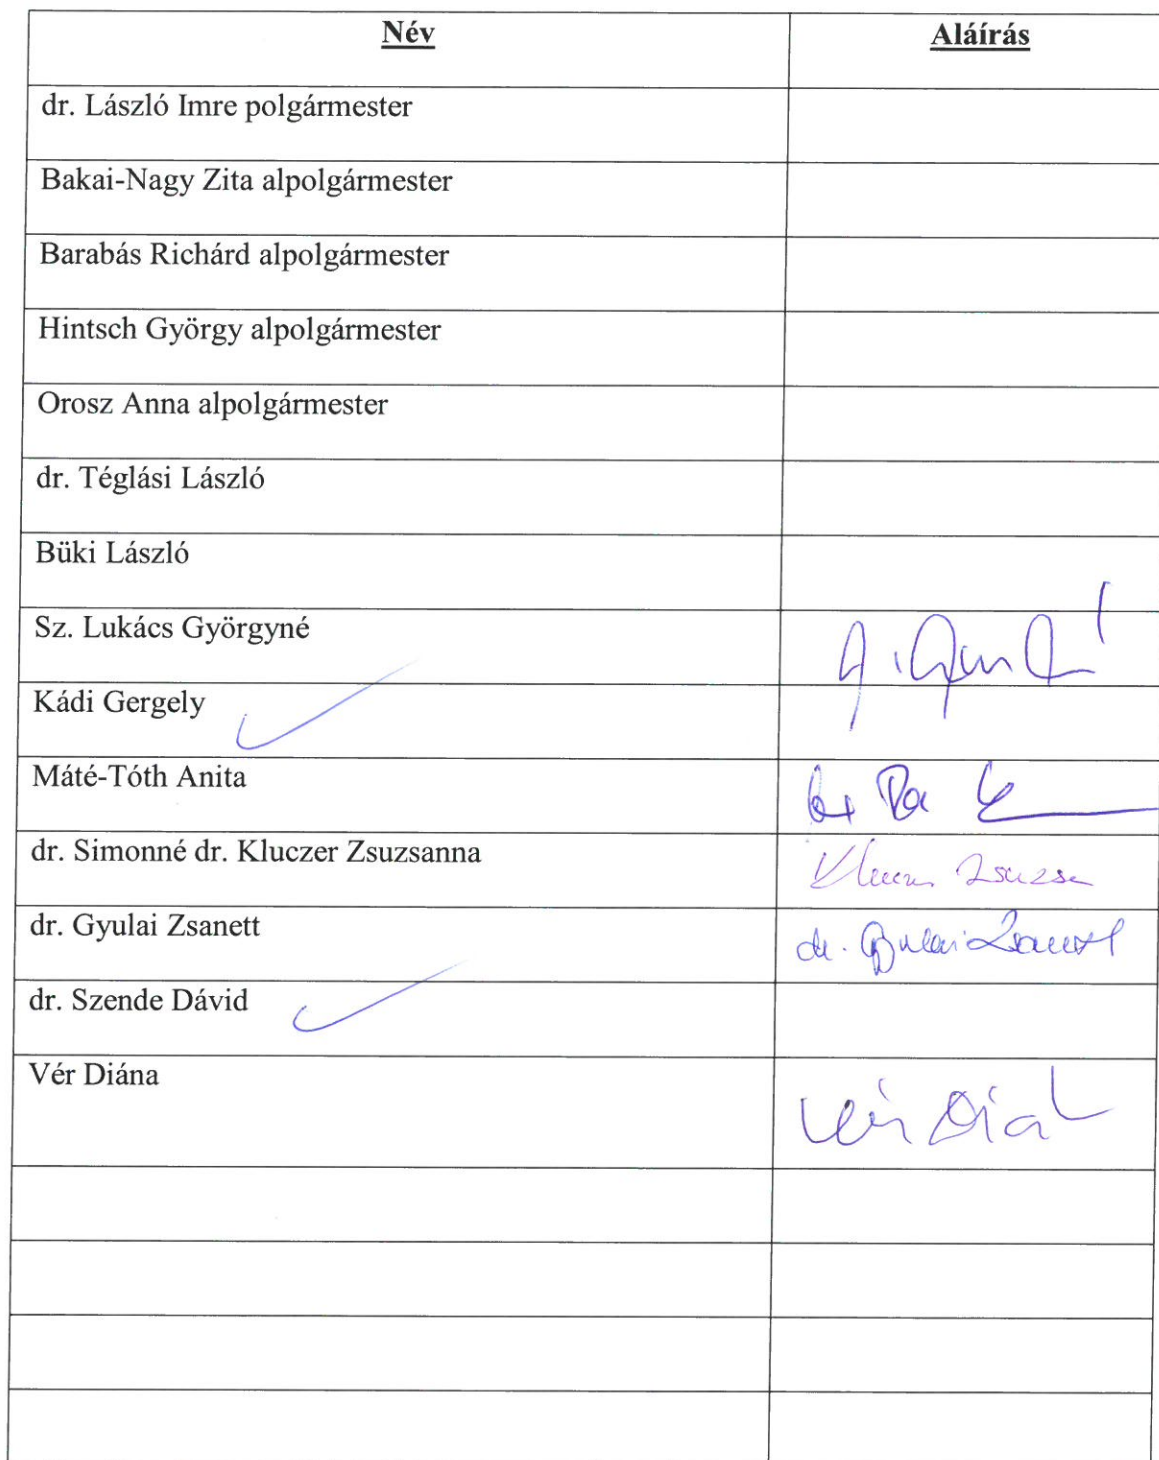 Név Aláírás
dr. László Imre polgármester
Bakai-Nagy Zita alpolgármester
Barabás Richárd alpolgármester
Hintsch György alpolgármester
Orosz Anna alpolgármester
dr. Téglási László
Büki László
Sz. Lukács Györgyné
Kádi Gergely
Máté-Tóth Anita
dr. Simonné dr. Kluczer Zsuzsanna
dr. Gyulai Zsanett dr. Gyulai Zsanett
dr. Szende Dávid
Vér Diána Vér